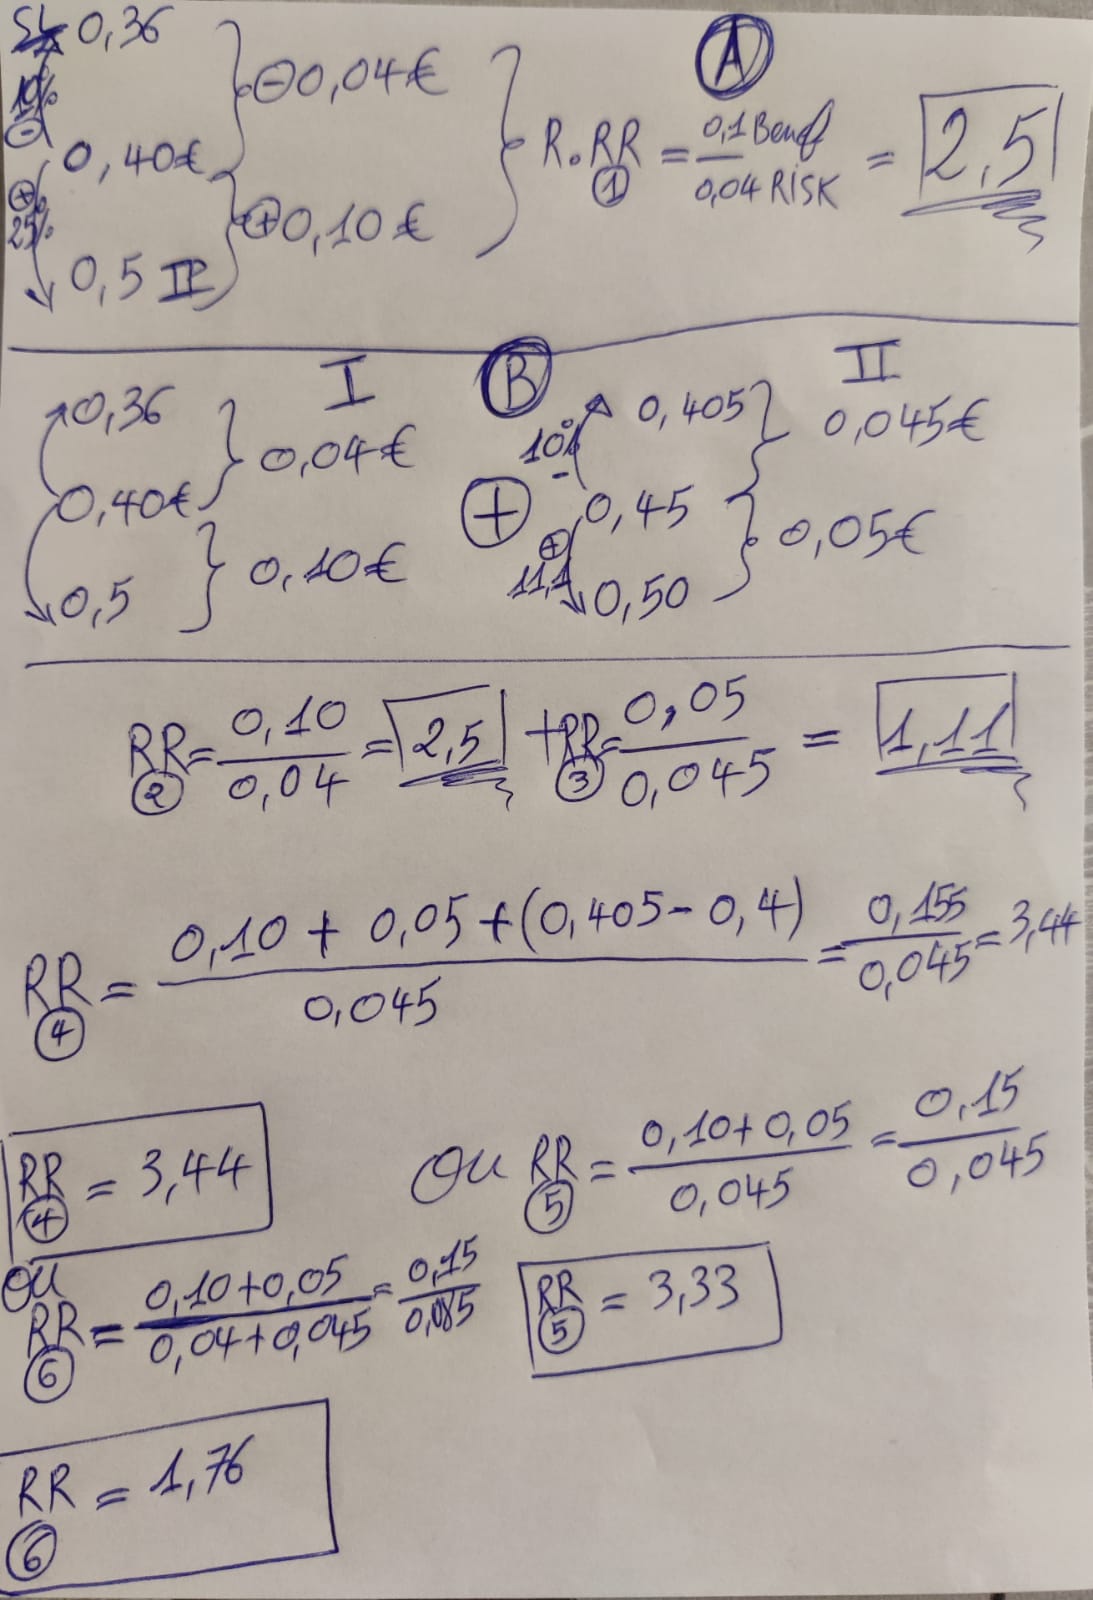 SL 0,36
10%
⊖ 0,04€
Ⓐ
⊖
0,40€
R.RR ① = 0,1 Benef / 0,04 RISK = 2,5
⊕
25%
⊕ 0,10€
0,5 TP
I
Ⓑ
II
0,36
0,04€
0,405
0,045€
10%
-
0,40€
+
0,45
0,10€
⊕
11,1
0,05€
0,5
0,50
RR ② = 0,10 / 0,04 = 2,5 + RR ③ = 0,05 / 0,045 = 1,11
RR ④ = 0,10 + 0,05 + (0,405 - 0,4) / 0,045 = 0,155 / 0,045 = 3,44
RR ④ = 3,44
OU RR ⑤ = 0,10+0,05 / 0,045 = 0,15 / 0,045
OU
RR ⑥ = 0,10+0,05 / 0,04+0,045 = 0,15 / 0,085
RR ⑤ = 3,33
RR ⑥ = 1,76